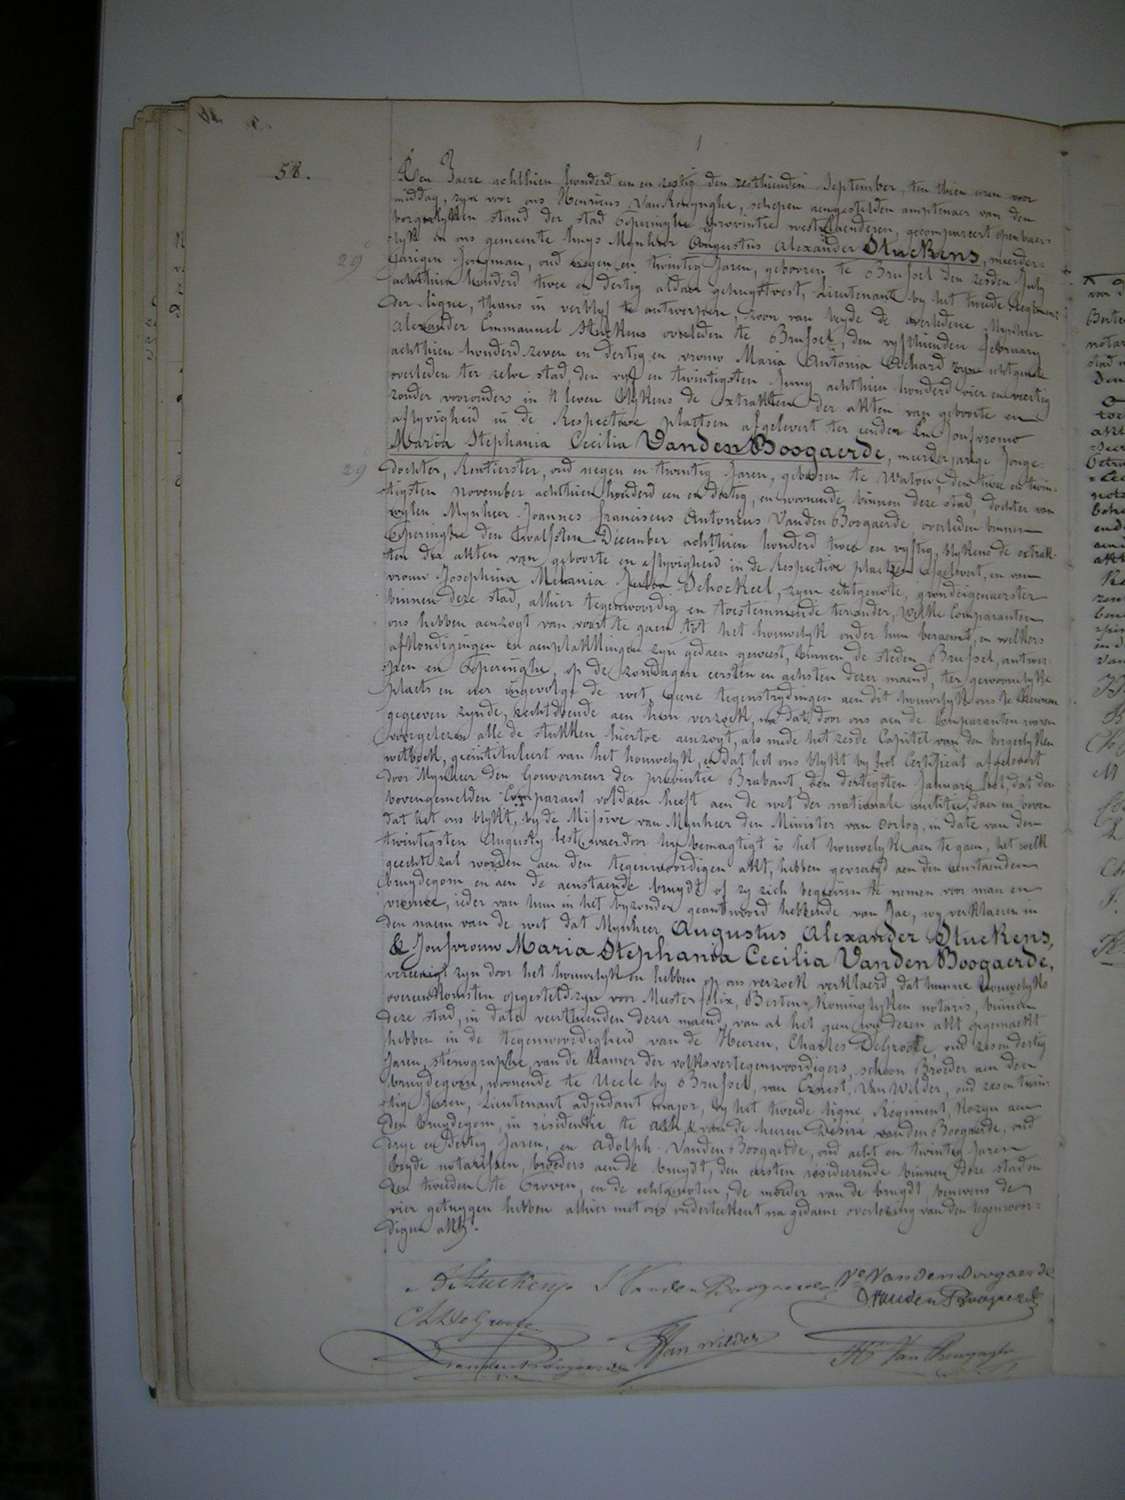 58.
Den Jaere achthien honderd een en zestig den zesthienden September, ten thien uren voor
middag, zyn voor ons Henricus VanRenynghe, schepen aengestelden amptenaer van den
borgerlyken stand der stad Poperinghe provintie westvlaenderen, gecompareert openbaer-
lyk in ons gemeente huys Mynheer Augustus Alexander Stuckens, meerder-
29
jarigen Jongman, oud negen en twintig Jaren, geboren te Brussel den zesden July
achthien honderd twee en dertig aldaer gehuystvest, Lieutenant by het tweede Regiment
der Ligne, thans in verblyf te antwerpen, zoon van beyde de overledene Mynheer
Alexander Emmanuel Stuckens overleden te Brussel, den vyfthienden february
achthien honderd zeven en dertig en vrouw Maria Antonia Achard zyne echtgenote
overleden ter zelve stad, den vyf en twintigsten Juny achthien honderd vier en veertig
zonder voorouders in 't leven blykens de extrakten der akten van geboorte en
aflyvigheid in de Respective plaetsen afgelevert ter eender En Jonfvrouw
Maria Stephania Cecilia VandenBoogaerde, meerderjarige Jonge
29
dochter, Rentierster, oud negen en twintig Jaren, geboren te Watou, den twee en twin-
tigsten November achthien honderd een en dertig, en woonende binnen deze stad, dochter van
wylen Mynheer Joannes franciscus Antonius VandenBoogaerde, overleden binnen
Poperinghe den twalfsten December achthien honderd twee en vyftig, blykens de extrak-
ten der akten van geboorte en aflyvigheid in de Respective plaetsen afgelevert, en van
vrouw Josephina Melania Julia Schockeel, zyne echtgenote, grondeigenaerster
binnen deze stad, alhier tegenwoordig en toestemmende ter ander, welke Comparanten
ons hebben aenzogt van voort te gaen tot het houwelyk onder hun beraemt, en welkers
afkondigingen en aenplakkingen zyn gedaen geweest, binnen de steden Brussel, antwer-
pen en Poperinghe, op de zondagen eersten en achsten dezer maend, ter gewoonelyke
plaets en uer ingevolge de wet, geene tegenstrydingen aen dit houwelyk ons te kennen
gegeven zynde, rechtdoende aen hun verzoek, na dat door ons aen de Comparanten waren
voorgelezen alle de stukken hiertoe aenzogt, als mede het zesde Capitel van den borgerlyken
wetboek, geintituleert van het houwelyk, en dat het ons blykt by het Certificat afgelevert
door Mynheer den Gouverneur der provintie Brabant, den dertigsten January lest, dat den
bovengemelden Comparant voldaen heeft aen de wet der nationale militie, daer en boven
dat het ons blykt, by de Missive van Mynheer den Minister van Oorlog, in date van den
twintigsten Augusty lest, waer door hy bemagtigt is het houwelyk aen te gaen, het welk
geecht zal worden aen den tegenwoordigen akt, hebben gevraegd aen den aenstaenden
bruydegom en aen de aenstaende bruydt of zy zich begeiren te nemen voor man en
vrouwe, ieder van hun in het byzonder geantwoord hebbende van Jae, wy verklaeren in
den naem van de wet dat Mynheer Augustus Alexander Stuckens,
& Jonfvrouw Maria Stephania Cecilia VandenBoogaerde,
vereenigt zyn door het houwelyk en hebben op ons verzoek verklaerd, dat hunne houwelyks
overeenkomsten opgesteld zyn voor Meester felix, Berten Koninglyken notaris, binnen
deze stad, in date veerthienden dezer maend, van al het gene wy dezen akt opgemaekt
hebben in de tegenwoordigheid van de Heeren, Charles DeGroote, oud zes en dertig
Jaren, sténographe, van de Kamer der volksvertegenwoordigers, schoon Broeder aen den
bruydegom, woonende te Uccle by Brussel, van Ernest VanWilder, oud zes en twin-
tig Jaren, Lieutenant adjudant major, by het tweede ligne, Regiment, Kozyn aen
den bruydegom, in residentie te Ath, & van de heeren Desiré vandenBoogaerde, oud
drye en dertig Jaren, en Adolph VandenBoogaerde, oud acht en twintig Jaren
beyde notarissen, broeders aen de bruydt, den eersten resideerende binnen deze stad en
den tweeden te Crovon, en de echtgenoten, de moeder van de bruydt, benevens de
vier getuygen hebben alhier met ons onderteekent na gedaene overlezing van den tegenwoor-
digen akt.
AStuckens S VandenBoogaerde Ve VandenBoogaerde
DVandenBoogaerde
Ch DeGroote
VandenBoogaerde EVan wilder Hri Van Renynghe